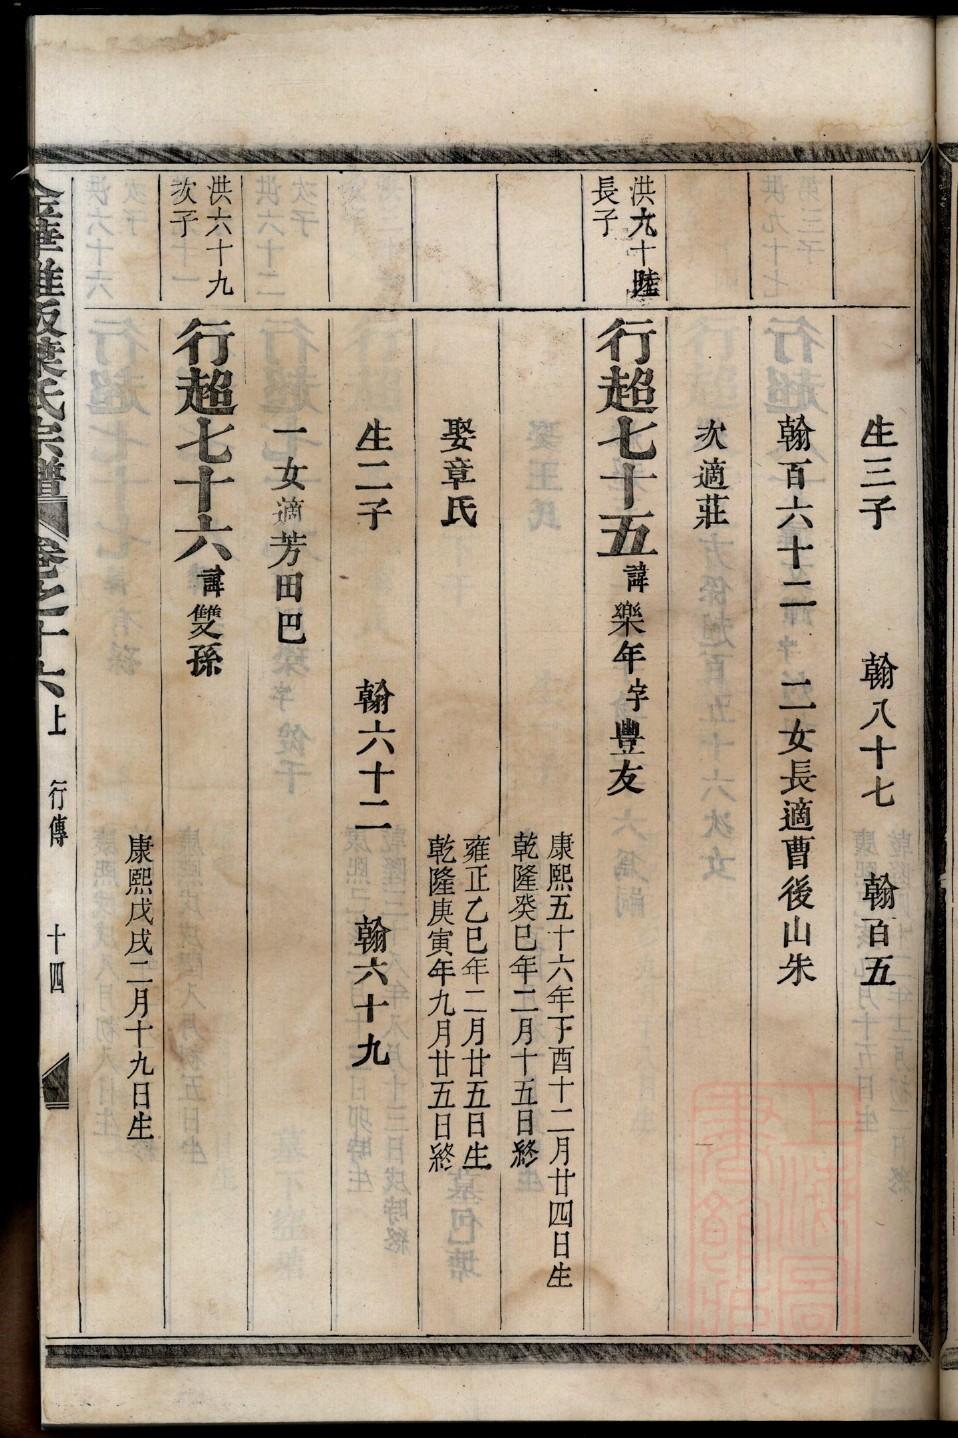 生三子　翰八十七　翰百五
翰百六十二　二女長適曹後山朱
次適莊
洪九十陸
長子
行超七十五諱樂年字豐友
康熙五十六年丁酉十二月廿四日生
乾隆癸巳年二月十五日終
娶章氏
雍正乙巳年二月廿五日生
乾隆庚寅年九月廿五日終
生二子　翰六十二　翰六十九
一女適芳田巴
洪六十九
次子
行超七十六諱雙孫
康熙戊戌二月十九日生
葉氏宗譜　卷之十六上　行傳　十四